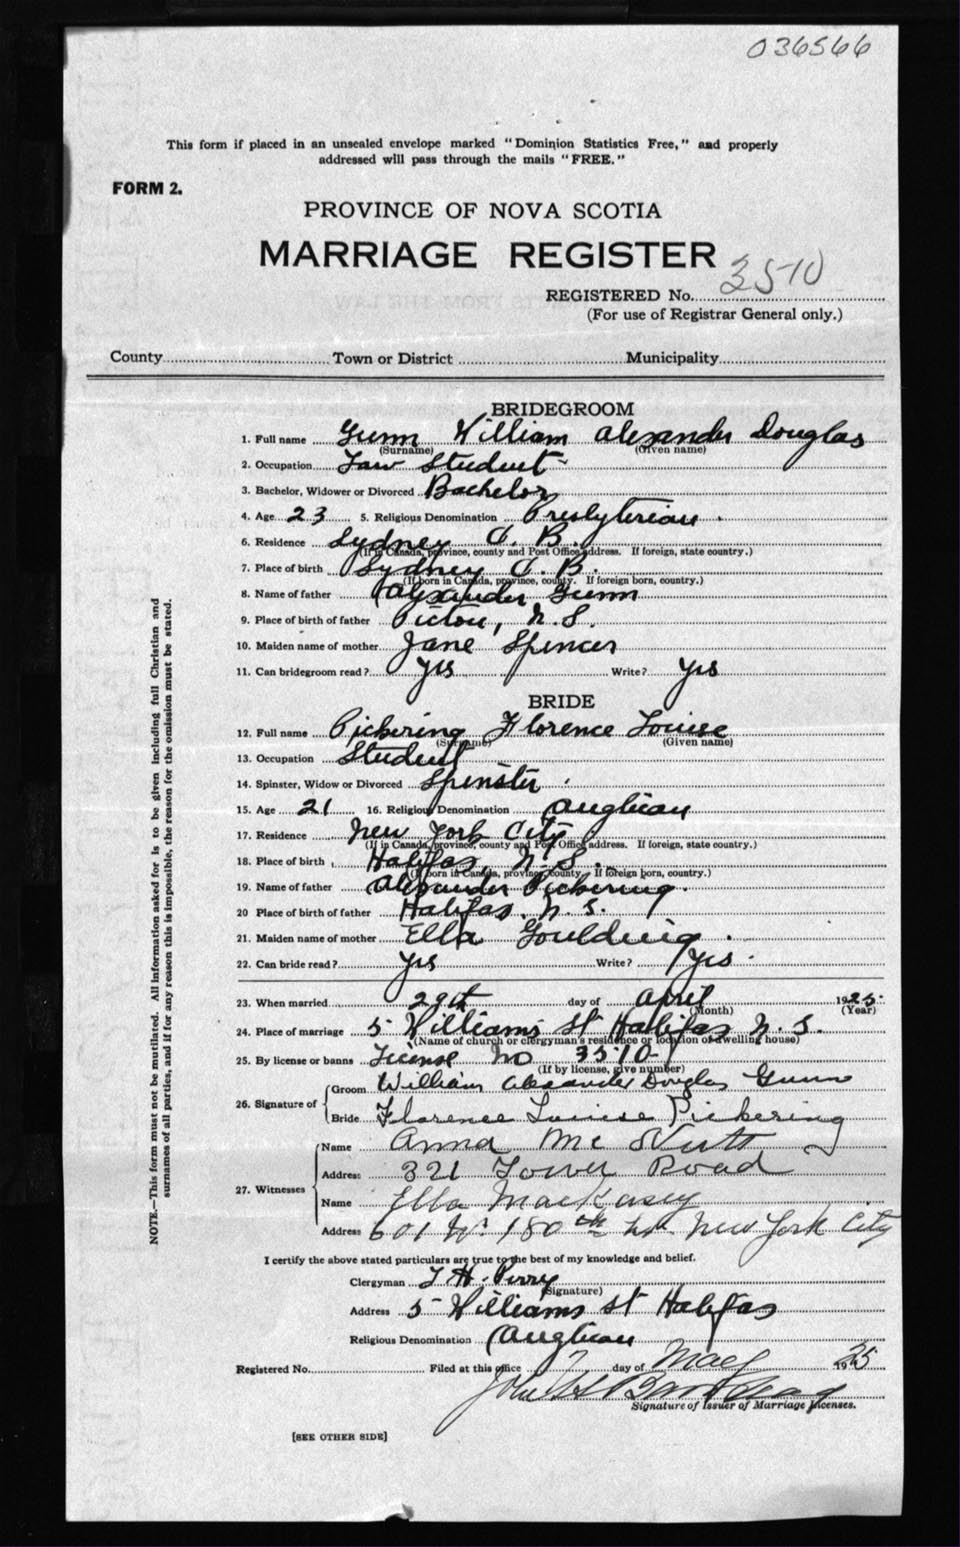 036566
This form if placed in an unsealed envelope marked "Dominion Statistics Free," and properly
addressed will pass through the mails "FREE."
FORM 2.
PROVINCE OF NOVA SCOTIA
MARRIAGE REGISTER
REGISTERED No. 3510
(For use of Registrar General only.)
County Town or District Municipality
BRIDEGROOM
1. Full name Gunn William Alexander Douglas
(Surname) (Given name)
2. Occupation Law Student
3. Bachelor, Widower or Divorced Bachelor
4. Age 23 5. Religious Denomination Presbyterian.
6. Residence Sydney C. B.
(If in Canada, province, county and Post Office address. If foreign, state country.)
7. Place of birth Sydney C. B.
(If born in Canada, province, county. If foreign born, country.)
8. Name of father Alexander Gunn
9. Place of birth of father Pictou, N.S.
10. Maiden name of mother Jane Spencer
11. Can bridegroom read? Yes Write? Yes
BRIDE
12. Full name Pickering Florence Louise
(Surname) (Given name)
13. Occupation Student
14. Spinster, Widow or Divorced Spinster.
15. Age 21 16. Religious Denomination Anglican
17. Residence New York City
(If in Canada, province, county and Post Office address. If foreign, state country.)
18. Place of birth Halifax, N.S.
(If born in Canada, province, county. If foreign born, country.)
19. Name of father Alexander Pickering.
20 Place of birth of father Halifax. N.S.
21. Maiden name of mother Ella Goulding.
22. Can bride read? Yes Write? Yes.
23. When married 29th day of April 1925.
(Month) (Year)
24. Place of marriage 5 Williams St Halifax N.S.
(Name of church or clergyman's residence or location of dwelling house)
25. By license or banns License No 3510
(If by license, give number)
26. Signature of Groom William Alexander Douglas Gunn
Bride Florence Louise Pickering
27. Witnesses Name Anna Mc Nutt
Address 321 Tower Road
Name Ella
Address 601 W. 180th New York City
I certify the above stated particulars are true to the best of my knowledge and belief.
Clergyman T H. Perry
(Signature)
Address 5 Williams St Halifax
Religious Denomination Anglican
Registered No. Filed at this office 7 day of May 1925
John
Signature of Issuer of Marriage Licenses.
[SEE OTHER SIDE]
NOTE.—This form must not be mutilated. All information asked for is to be given including full Christian and
surnames of all parties, and if for any reason this is impossible, the reason for the omission must be stated.